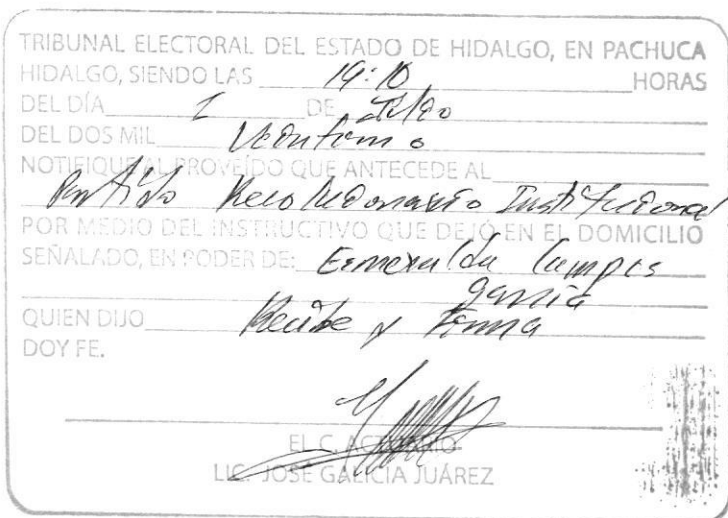 TRIBUNAL ELECTORAL DEL ESTADO DE HIDALGO, EN PACHUCA
HIDALGO, SIENDO LAS 19:10 HORAS
DEL DÍA 1 DE Julio
DEL DOS MIL Veintiuno
NOTIFIQUE AL PROVEÍDO QUE ANTECEDE AL
Partido Revolucionario Institucional
POR MEDIO DEL INSTRUCTIVO QUE DEJÓ EN EL DOMICILIO
SEÑALADO, EN PODER DE: Esmeralda Campos
García
QUIEN DIJO Recibe y Firma
DOY FE.
EL C. ACTUARIO
LIC. JOSÉ GALICIA JUÁREZ